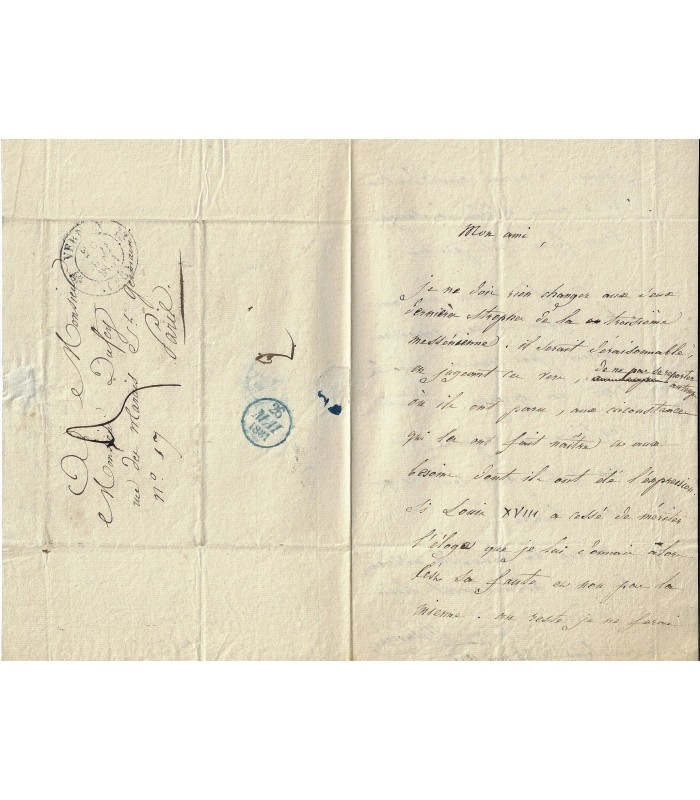 A Monsieur
Monsieur Dufey
rue du Marais St Germain
n° 17
Paris.
2
26
MAI
Mon ami,
je ne dois rien changer aux deux
dernières strophes de la troisième
messénienne. il serait déraisonnable
en jugeant ces vers, de ne pas se reporter au temps
où ils ont paru, aux circonstances
qui les ont fait naître et aux
besoins dont ils ont été l'expression.
Si Louis XVIII a cessé de mériter
l'éloge que je lui donnais alors
c'est sa faute et non pas la
mienne. au reste je ne ferai